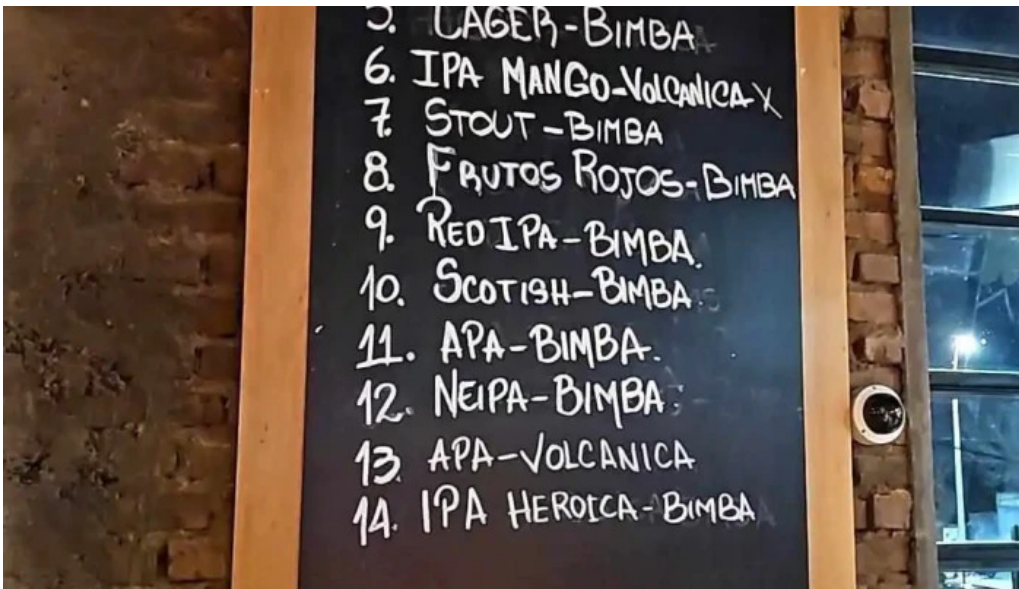 5. LAGER-BIMBA
6. IPA MANGO-VOLCANICA X
7. STOUT-BIMBA
8. FRUTOS ROJOS-BIMBA
9. RED IPA-BIMBA.
10. SCOTISH-BIMBA
11. APA-BIMBA.
12. NEIPA-BIMBA
13 APA-VOLCANICA
14. IPA HEROICA-BIMBA